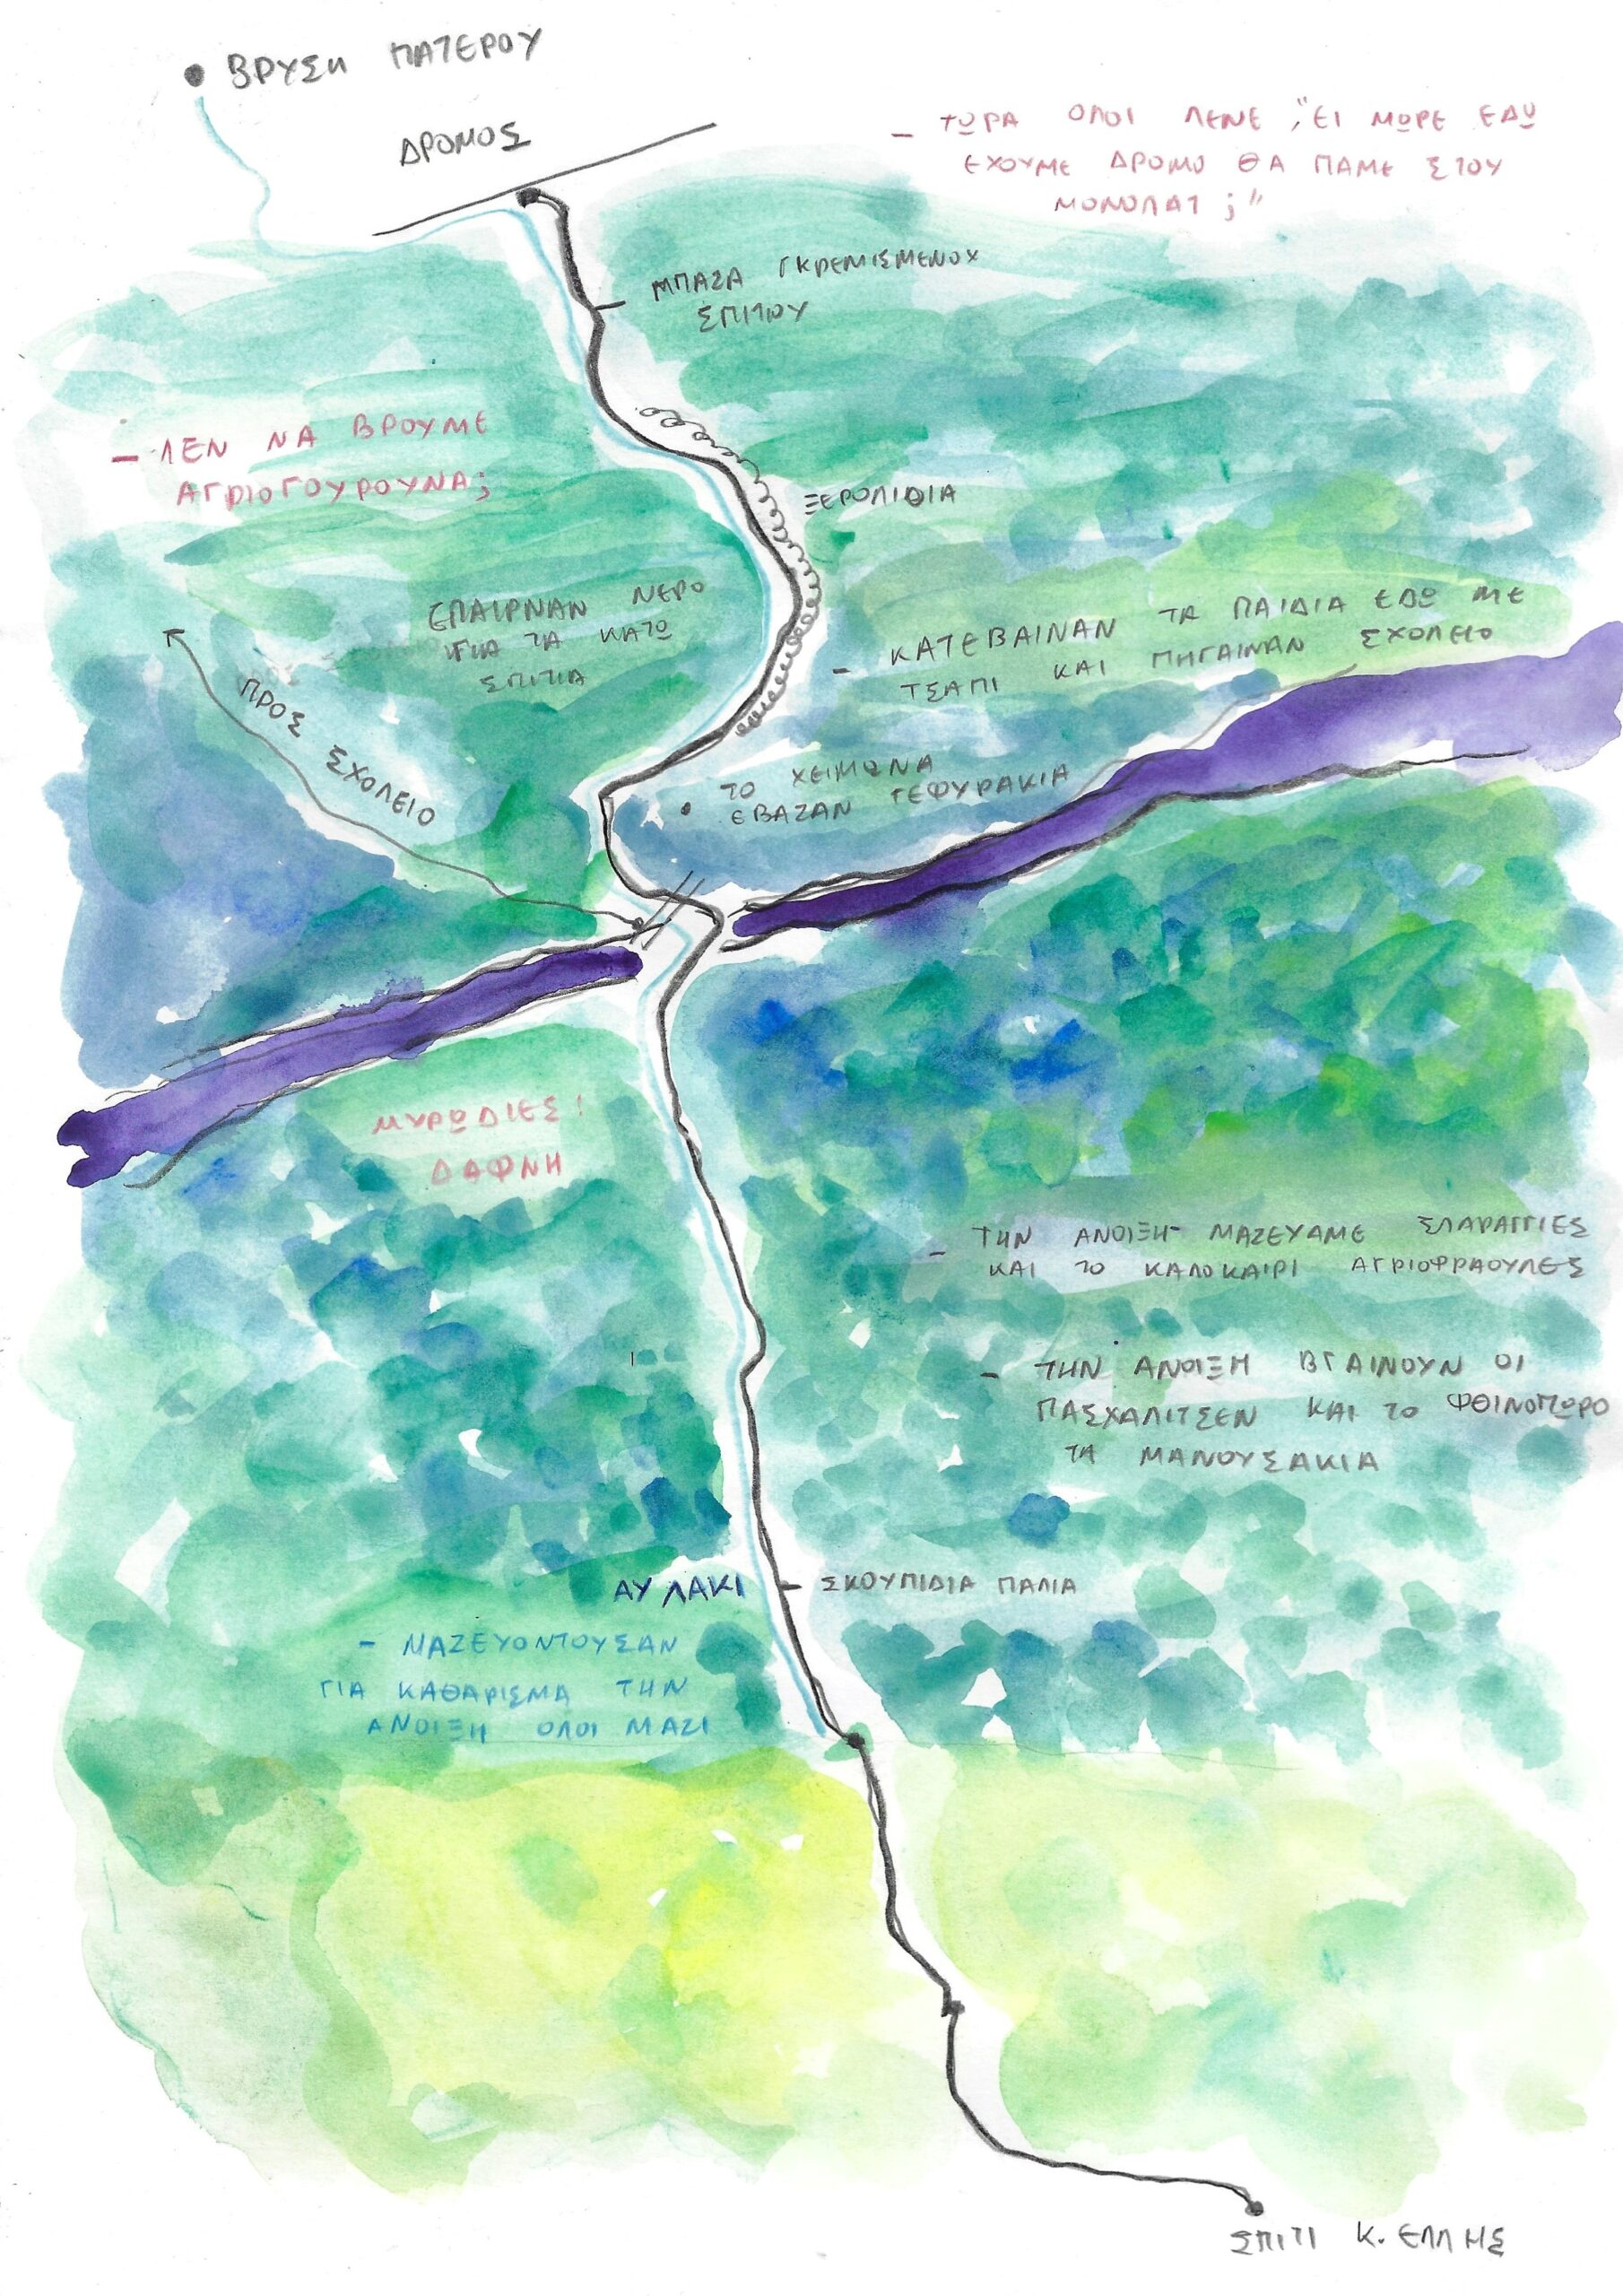 ΒΡΥΣΗ ΠΑΤΕΡΟΥ
ΔΡΟΜΟΣ
– ΤΩΡΑ ΟΛΟΙ ΛΕΝΕ "ΕΙ ΜΩΡΕ ΕΔΩ
ΕΧΟΥΜΕ ΔΡΟΜΟ ΘΑ ΠΑΜΕ ΣΤΟΥ
ΜΟΝΟΠΑΤ ;"
ΜΠΑΖΑ ΓΚΡΕΜΙΣΜΕΝΟΥ
ΣΠΙΤΟΥ
– ΛΕΝ ΝΑ ΒΡΟΥΜΕ
ΑΓΡΙΟΓΟΥΡΟΥΝΑ;
ΞΕΡΟΛΙΘΙΑ
ΕΠΑΙΡΝΑΝ ΝΕΡΟ
ΓΙΑ ΤΑ ΚΑΤΩ
ΣΠΙΤΙΑ
– ΚΑΤΕΒΑΙΝΑΝ ΤΑ ΠΑΙΔΙΑ ΕΔΩ ΜΕ
ΤΣΑΠΙ ΚΑΙ ΠΗΓΑΙΝΑΝ ΣΧΟΛΕΙΟ
ΠΡΟΣ ΣΧΟΛΕΙΟ
• ΤΟ ΧΕΙΜΩΝΑ
ΕΒΑΖΑΝ ΓΕΦΥΡΑΚΙΑ
ΜΥΡΩΔΙΕΣ!
ΔΑΦΝΗ
– ΤΗΝ ΑΝΟΙΞΗ ΜΑΖΕΥΑΜΕ ΣΠΑΡΑΓΓΙΕΣ
ΚΑΙ ΤΟ ΚΑΛΟΚΑΙΡΙ ΑΓΡΙΟΦΡΑΟΥΛΕΣ
– ΤΗΝ ΑΝΟΙΞΗ ΒΓΑΙΝΟΥΝ ΟΙ
ΠΑΣΧΑΛΙΤΣΕΝ ΚΑΙ ΤΟ ΦΘΙΝΟΠΩΡΟ
ΤΑ ΜΑΝΟΥΣΑΚΙΑ
ΑΥΛΑΚΙ
ΣΚΟΥΠΙΔΙΑ ΠΑΛΙΑ
– ΜΑΖΕΥΟΝΤΟΥΣΑΝ
ΓΙΑ ΚΑΘΑΡΙΣΜΑ ΤΗΝ
ΑΝΟΙΞΗ ΟΛΟΙ ΜΑΖΙ
ΣΠΙΤΙ Κ. ΕΛΛΗΣ